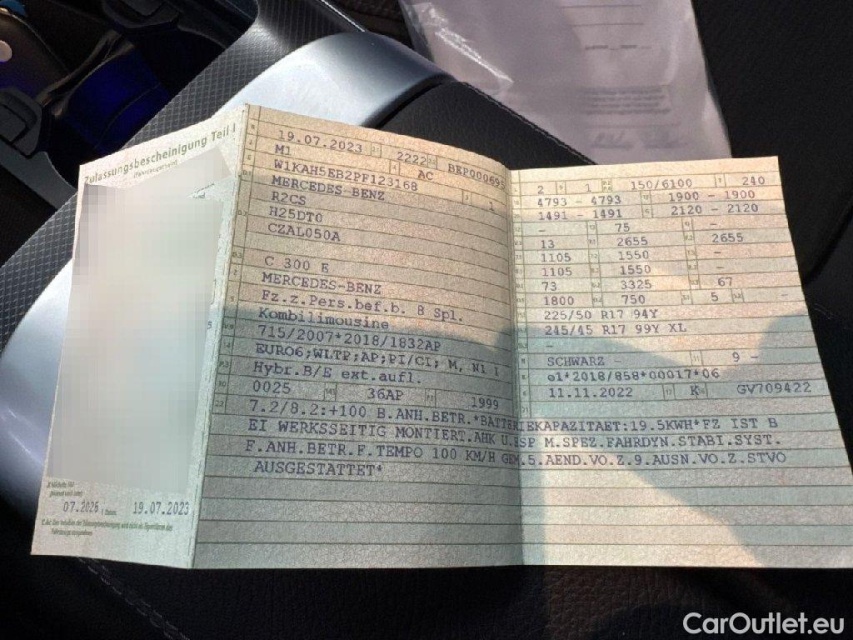 Zulassungsbescheinigung Teil I
19.07.2023 2222 BEP000695
M1 AC
W1KAH5EB2PF123168 1
MERCEDES-BENZ
R2CS
H25DT0
CZAL050A
C 300 E
MERCEDES-BENZ
Fz.z.Pers.bef.b. 8 Spl.
Kombilimousine
715/2007*2018/1832AP
EURO6;WLTP;AP;PI/CI; M, N1 I
Hybr.B/E ext.aufl.
0025 36AP 1999
2 1 150/6100 240
4793 - 4793 1900 - 1900
1491 - 1491 2120 - 2120
- 75 -
13 2655 2655
1105 1550 -
1105 1550 -
73 3325 67
1800 750 5 -
225/50 R17 94Y
245/45 R17 99Y XL
-
SCHWARZ - 9 -
e1*2018/858*00017*06
11.11.2022 K GV709422
7.2/8.2:+100 B.ANH.BETR.*BATTERIEKAPAZITAET:19.5KWH*FZ IST B
EI WERKSSEITIG MONTIERT.AHK U.ESP M.SPEZ.FAHRDYN.STABI.SYST.
F.ANH.BETR.F.TEMPO 100 KM/H GEM.5.AEND.VO.Z.9.AUSN.VO.Z.STVO
AUSGESTATTET*
07.2026 19.07.2023
CarOutlet.eu